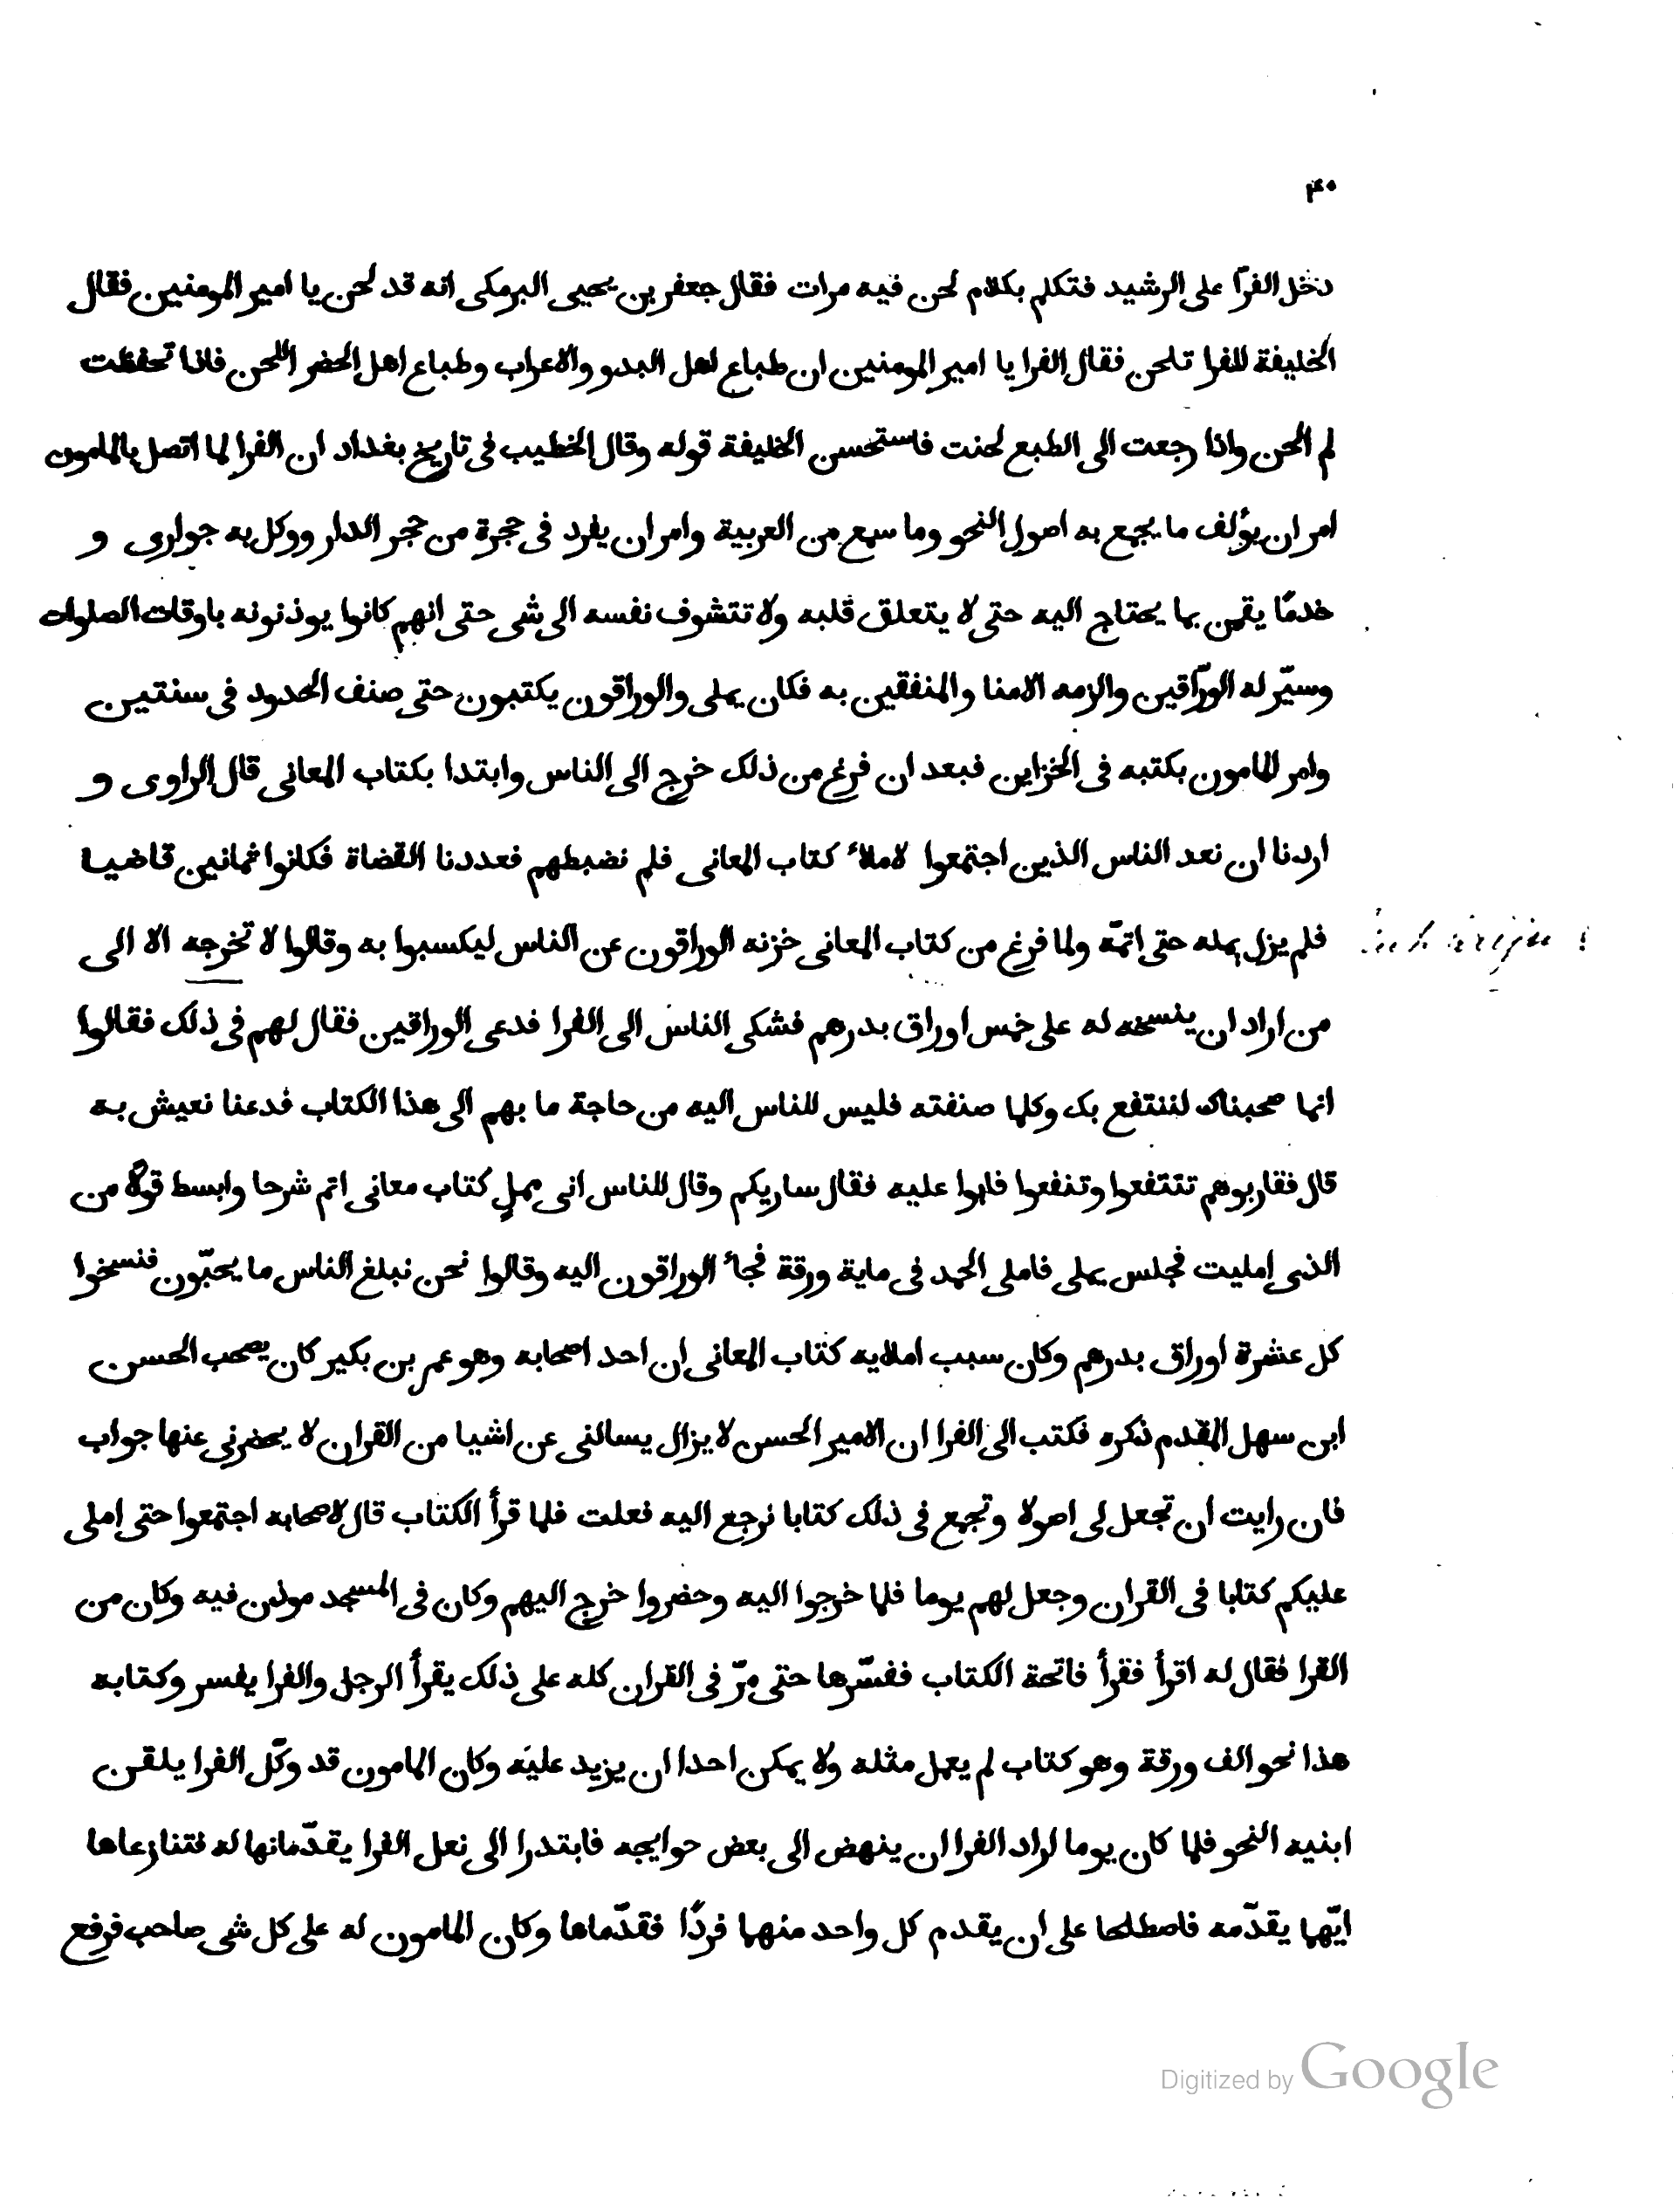 ۴۰
دخل الفرآ على الرشيد فتكلم بكلام لحن فيه مرات فقال جعفر بن يحيى البرمكى انه قد لحن يا امير المومنين فقال
الخليفة للفرا تلحن فقال الفرا يا امير المومنين ان طباع اهل البدو والاعراب وطباع اهل الحضر اللحن فاذا تحفظت
لم الحن واذا رجعت الى الطبع لحنت فاستحسن الخليفة قوله وقال الخطيب فى تاريخ بغداد ان الفرا لما اتصل بالمامون
امر ان يؤلف ما يجمع به اصول النحو وما سمع من العربية وامر ان يفرد فى حجرة من حجر الدار ووكل به جوارى و
خدمًا يقمن بما يحتاج اليه حتى لا يتعلق قلبه ولا تتشوف نفسه الى شى حتى انهم كانوا يوذنونه باوقات الصلوات
وسيّر له الورّاقين والزمه الامنا والمنفقين به فكان يملى والوراقون يكتبون حتى صنف الحدود فى سنتين
وامر المامون بكتبه فى الخزاين فبعد ان فرغ من ذلك خرج الى الناس وابتدا بكتاب المعانى قال الراوى و
اردنا ان نعد الناس الذين اجتمعوا لاملاء كتاب المعانى فلم نضبطهم فعددنا القضاة فكانوا ثمانين قاضيا
فلم يزل يمله حتى اتمّه ولما فرغ من كتاب المعانى خزنه الوراقون عن الناس ليكسبوا به وقالوا لا تخرجه الا الى
من اراد ان ينسخه له على خمس اوراق بدرهم فشكى الناس الى الفرا فدعى الوراقين فقال لهم فى ذلك فقالوا
انما صحبناك لننتفع بك وكلما صنفته فليس للناس اليه من حاجة ما بهم الى هذا الكتاب فدعنا نعيش به
قال فقاربوهم تنتفعوا وتنفعوا فابوا عليه فقال ساريكم وقال للناس انى ممل كتاب معانى اتم شرحا وابسط قولا من
الذى امليت فجلس يملى فاملى الحمد فى ماية ورقة فجاء الوراقون اليه وقالوا نحن نبلغ الناس ما يحبّون فنسخوا
كل عشرة اوراق بدرهم وكان سبب املايه كتاب المعانى ان احد اصحابه وهو عمر بن بكير كان يصحب الحسن
ابن سهل المقدم ذكره فكتب الى الفرا ان الامير الحسن لا يزال يسالنى عن اشيا من القران لا يحضرنى عنها جواب
فان رايت ان تجعل لى اصولا وتجمع فى ذلك كتابا نرجع اليه فعلت فلما قرأ الكتاب قال لاصحابه اجتمعوا حتى املى
عليكم كتابا فى القران وجعل لهم يوما فلما خرجوا اليه وحضروا خرج اليهم وكان فى المسجد موذن فيه وكان من
القرا فقال له اقرأ فقرأ فاتحة الكتاب ففسّرها حتى مرّ فى القران كله على ذلك يقرأ الرجل والفرا يفسر وكتابه
هذا نحو الف ورقة وهو كتاب لم يعمل مثله ولا يمكن احدا ان يزيد عليه وكان المامون قد وكّل الفرا يلقن
ابنيه النحو فلما كان يوما اراد الفرا ان ينهض الى بعض حوايجه فابتدرا الى نعل الفرا يقدّمانها له فتنازعاها
ايّهما يقدّمه فاصطلحا على ان يقدم كل واحد منهما فردًا فقدّماها وكان المامون له على كل شى صاحب فرفع
Digitized by Google